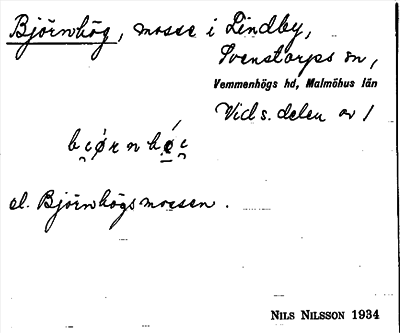 Björnhög, mosse i Lindby,
Svenstorps sn,
Vemmenhögs hd, Malmöhus län
Vid s. delen av /
el. Björnhögsmossen.
NILS NILSSON 1934